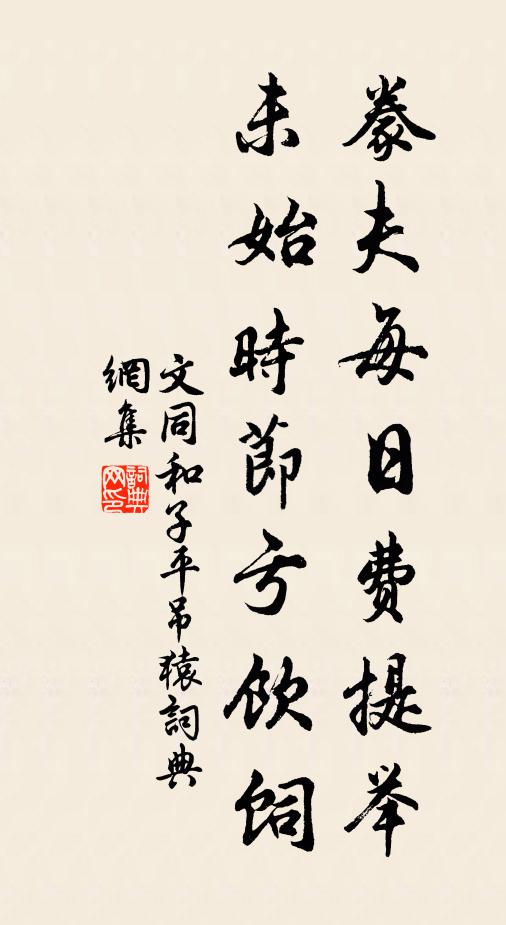 豢夫每日費提举
未始時節亏飲饲
文同和子平吊猿詞典
網集
詞典網印